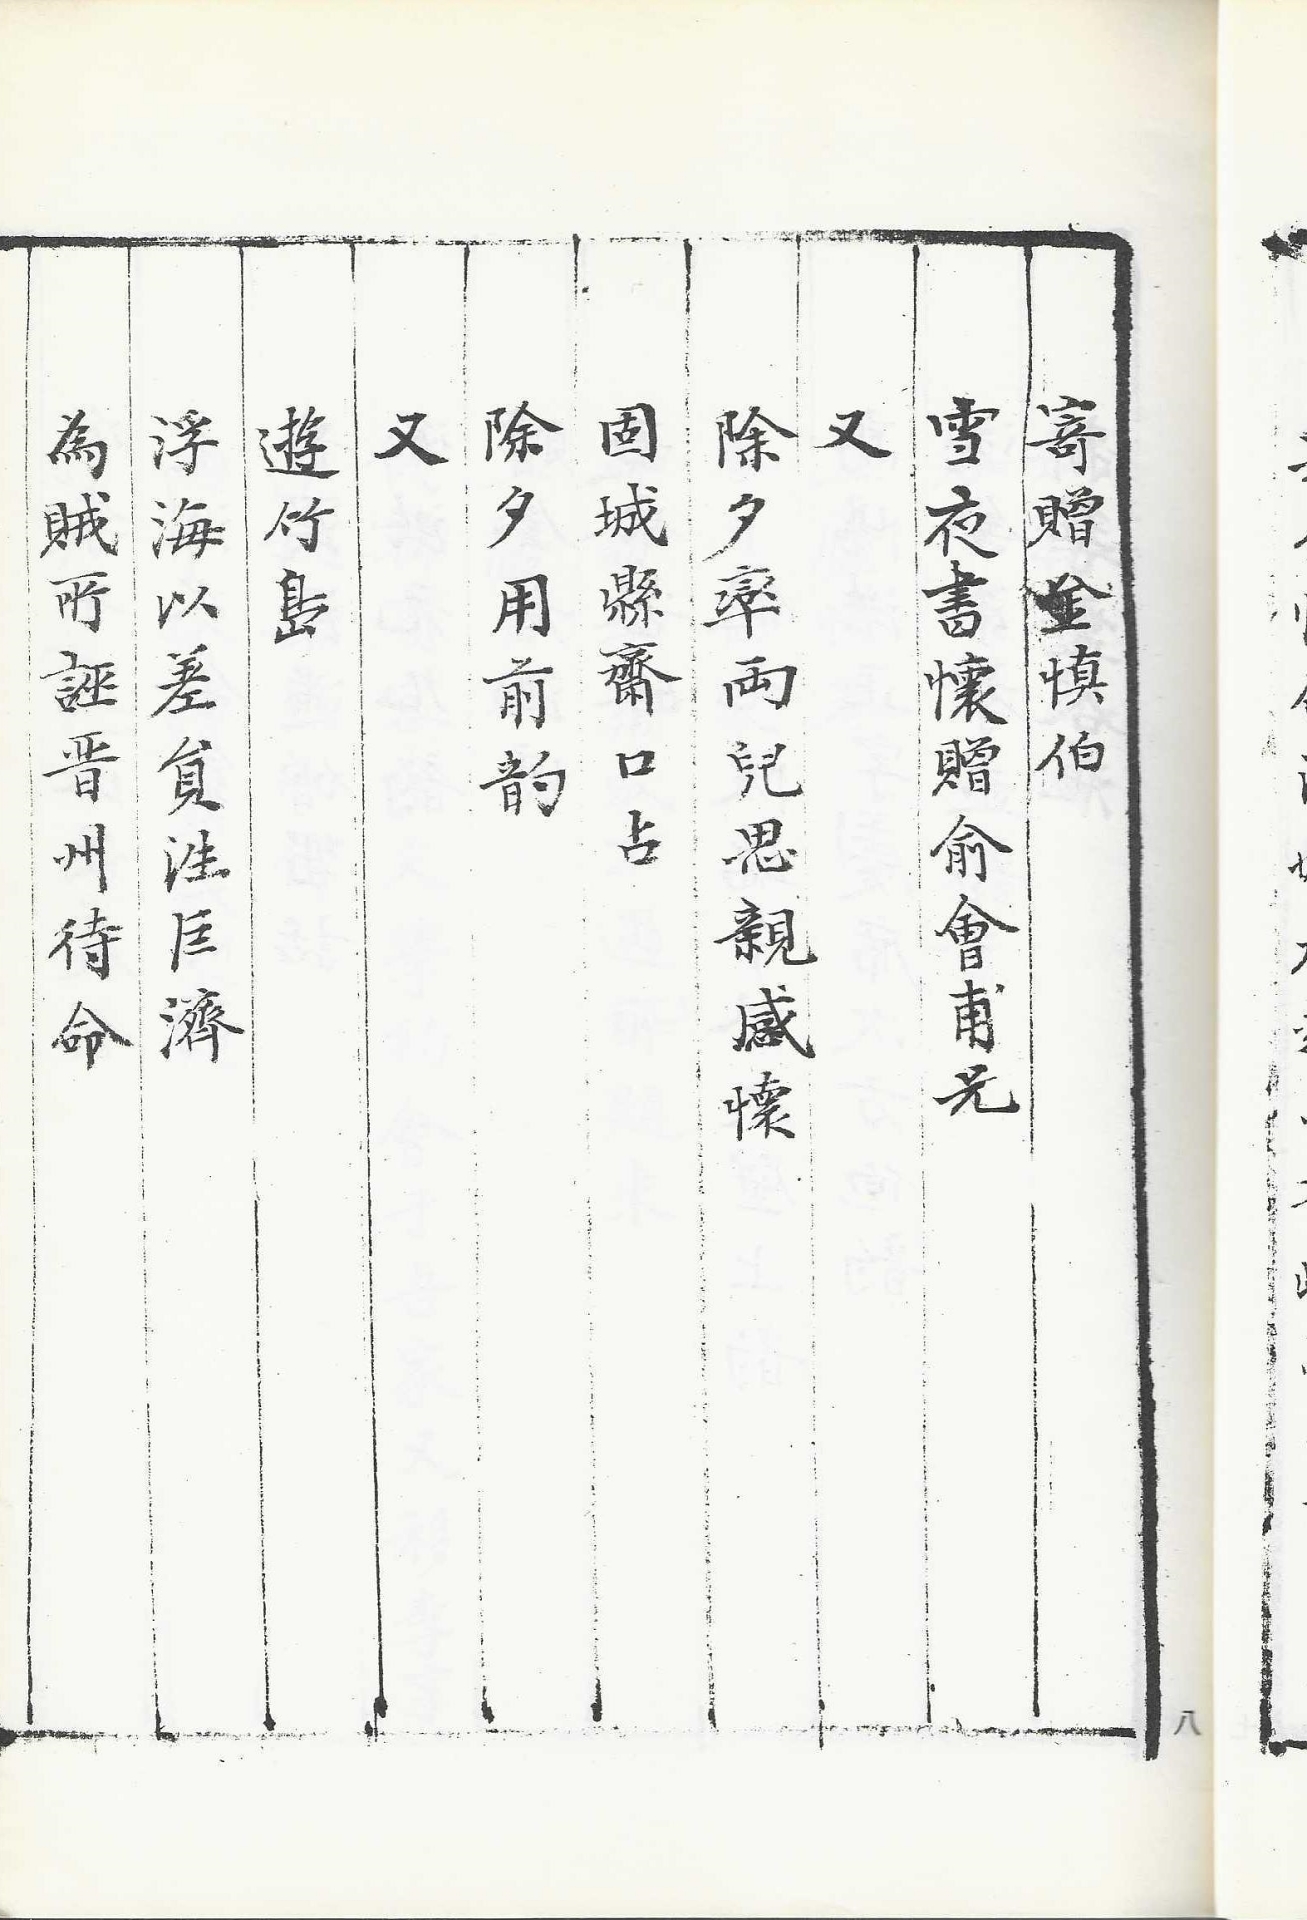 寄贈金慎伯
雪夜書懷贈俞會甫兄
又
除夕率兩兒思親感懷
固城縣齋口占
除夕用前韵
又
遊竹島
浮海以差貟涖巨濟
為賊所誣晋州待命
八